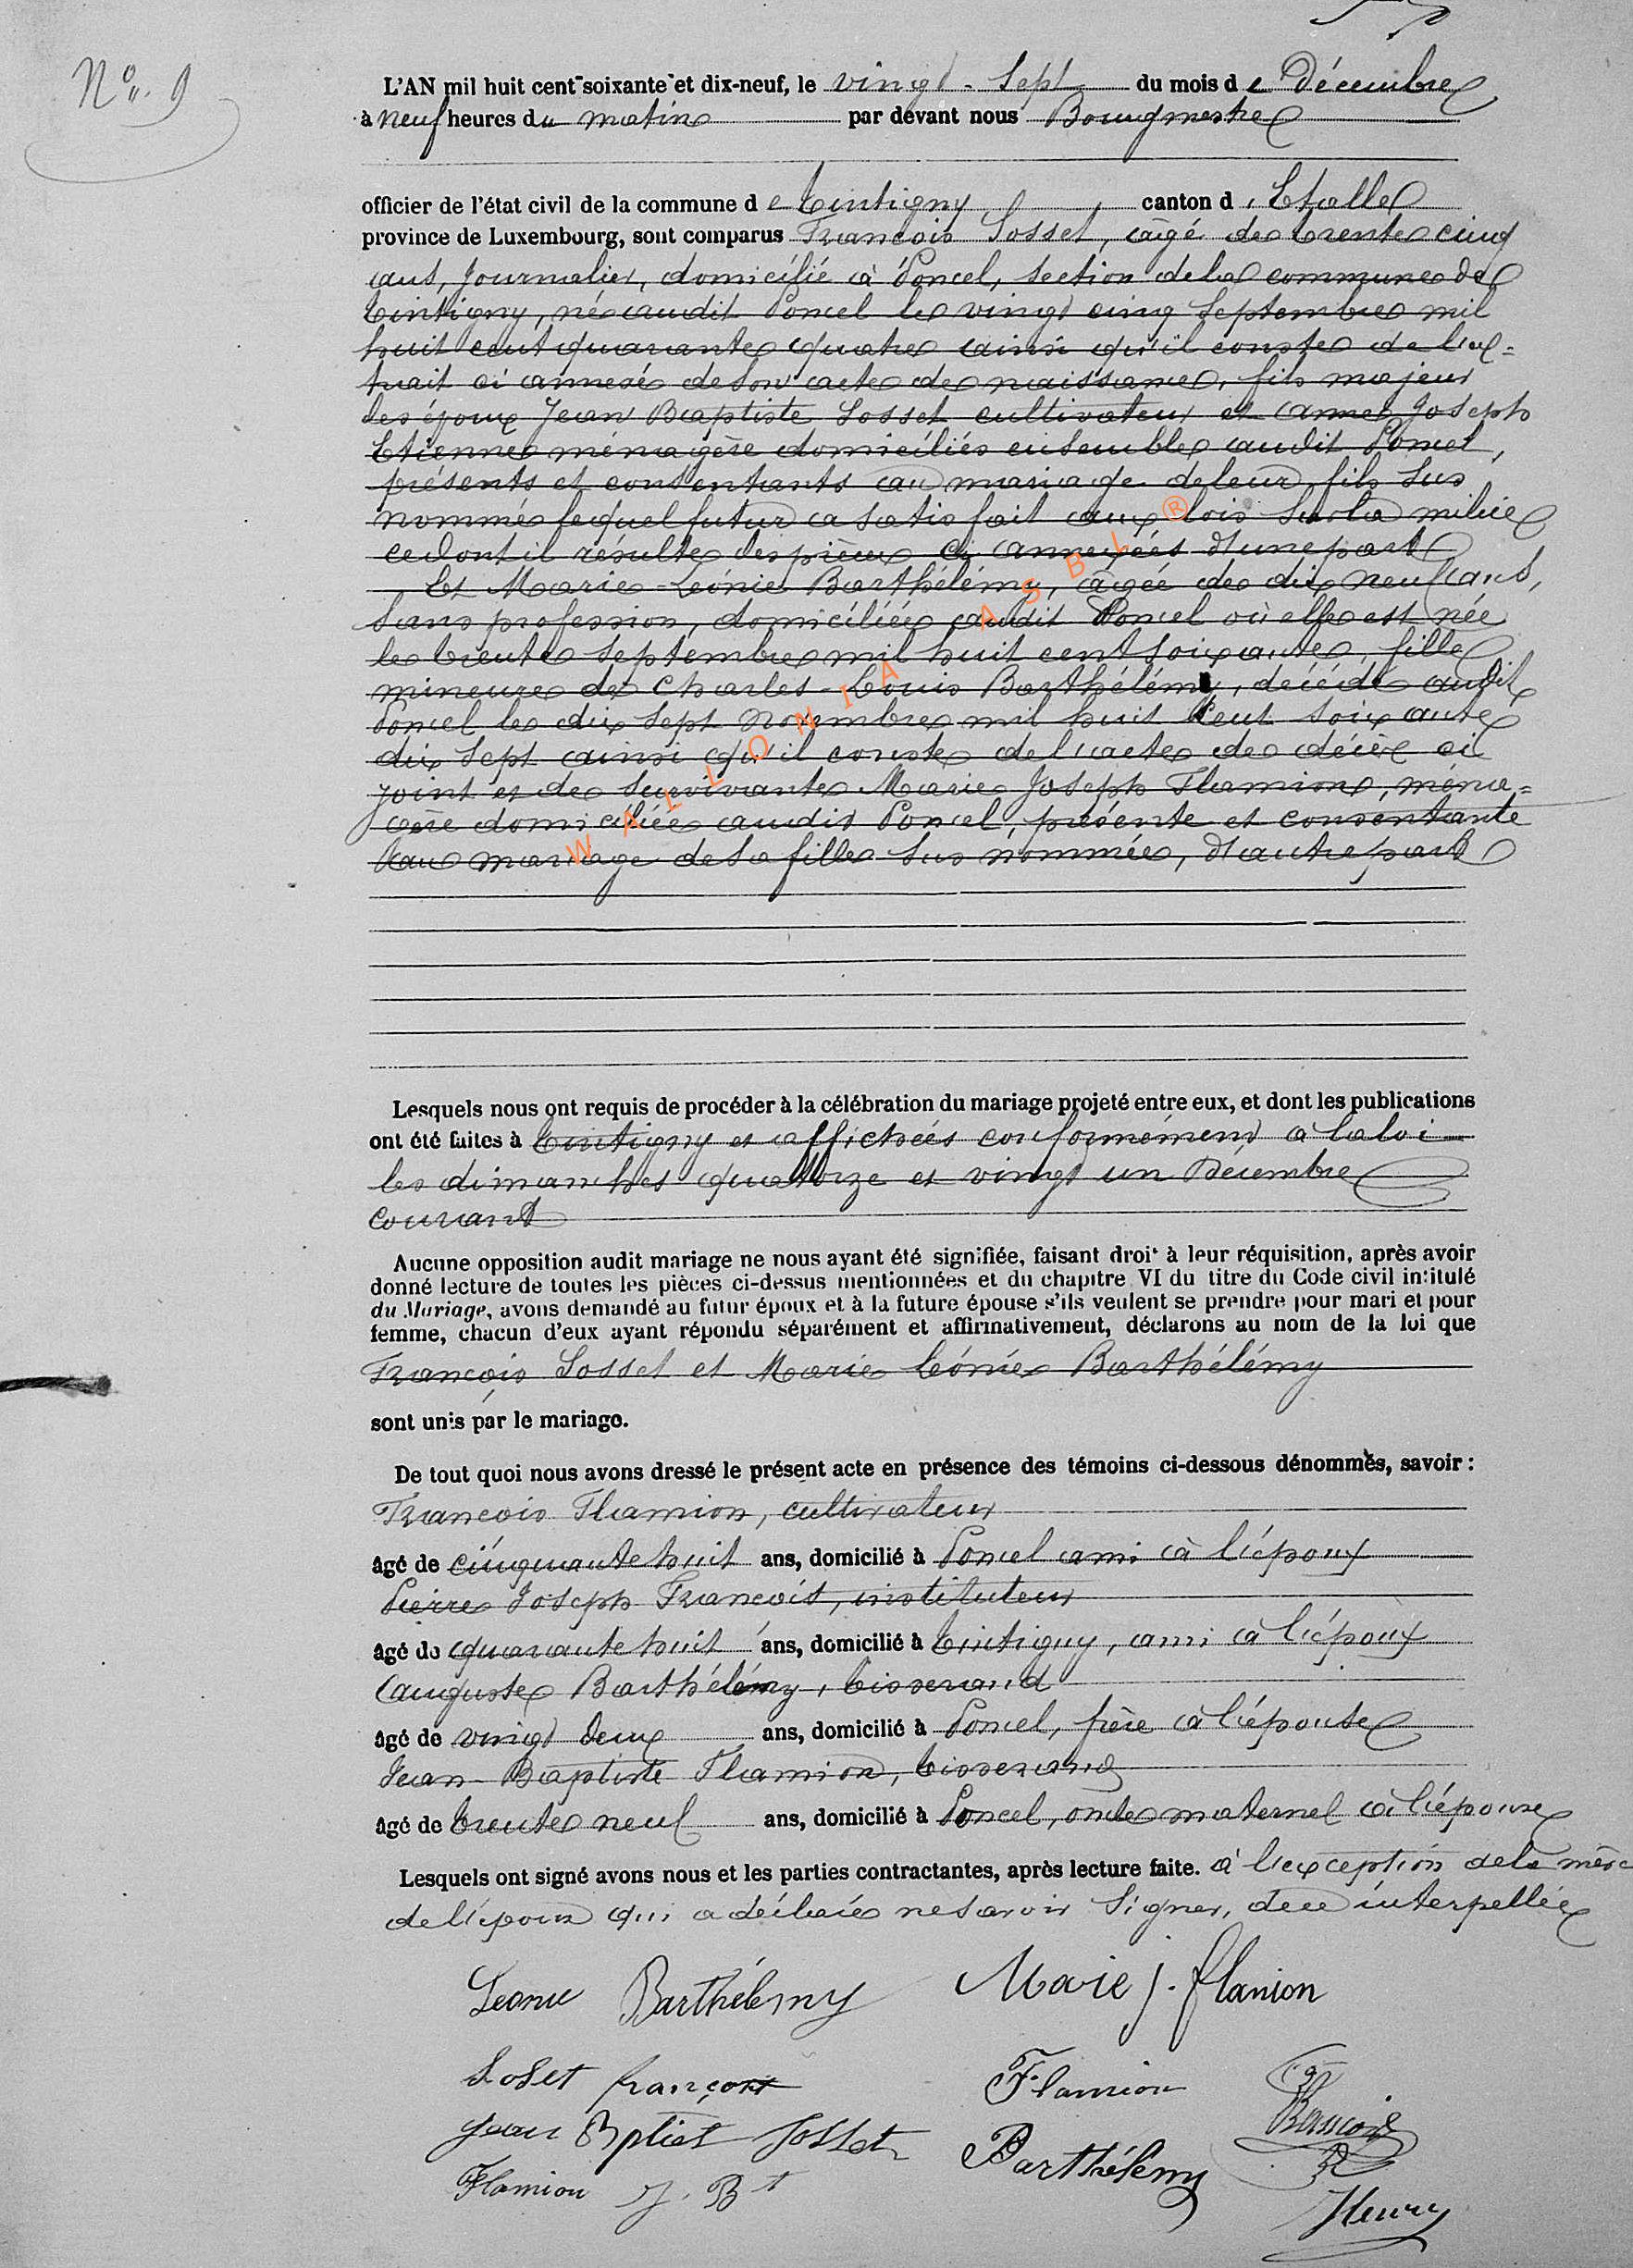 N° 9
L'AN mil huit cent soixante et dix-neuf, le vingt-sept du mois de Décembre
à neuf heures du matin par devant nous Bourgmestre
officier de l'état civil de la commune de Tintigny canton d'Etalle
province de Luxembourg, sont comparus François Sosset, âgé de trente cinq
ans, journalier, domicilié à Poncel, section de la commune de
Tintigny, né audit Poncel le vingt cinq Septembre mil
huit cent quarante quatre ainsi qu'il conste de l'ex=
trait ci annexé de son acte de naissance, fils majeur
des époux Jean Baptiste Sosset cultivateur et Anne Joseph
Etienne ménagère domiciliés ensemble audit Poncel,
présents et consentants au mariage de leur fils sus
nommé lequel futur a satisfait aux lois sur la milice
ce dont il résulte des pièces ci annexées d'une part
Et Marie-Léonie Barthélémy, âgée de dix neuf ans,
sans profession, domiciliée audit Poncel où elle est née
le trente Septembre mil huit cent soixante, fille
mineure de Charles-Louis Barthélémy, décédé audit
Poncel le dix sept Novembre mil huit cent soixante
dix sept ainsi qu'il conste de l'acte de décès ci
joint et de survivante Marie Joseph Flamion, ména=
gère domiciliée audit Poncel, présente et consentante
au mariage de sa fille sus nommée, d'autre part
WALLONIA ASBL ®
Lesquels nous ont requis de procéder à la célébration du mariage projeté entre eux, et dont les publications
ont été faites à Tintigny et affichées conformément à la loi
les dimanches quatorze et vingt un Décembre
courant
Aucune opposition audit mariage ne nous ayant été signifiée, faisant droit à leur réquisition, après avoir
donné lecture de toutes les pièces ci-dessus mentionnées et du chapitre VI du titre du Code civil intitulé
du Mariage, avons demandé au futur époux et à la future épouse s'ils veulent se prendre pour mari et pour
femme, chacun d'eux ayant répondu séparément et affirmativement, déclarons au nom de la loi que
François Sosset et Marie Léonie Barthélémy
sont unis par le mariage.
De tout quoi nous avons dressé le présent acte en présence des témoins ci-dessous dénommés, savoir :
François Flamion, cultivateur
âgé de cinquante huit ans, domicilié à Poncel ami à l'époux
Pierre Joseph François, instituteur
âgé de quarante huit ans, domicilié à Tintigny, ami à l'époux
Auguste Barthélémy, tisserand
âgé de vingt deux ans, domicilié à Poncel, frère à l'épouse
Jean-Baptiste Flamion, tisserand
âgé de trente neuf ans, domicilié à Poncel, oncle maternel à l'épouse
Lesquels ont signé avons nous et les parties contractantes, après lecture faite. à l'exception de la mère
de l'époux qui a déclaré ne savoir signer, de ce interpellée
Leonie Barthélemy Marie J. flamion
Soset françois Flamion François
Jean Bptiset Sosset Barthélémy
Flamion J. Bt Henry